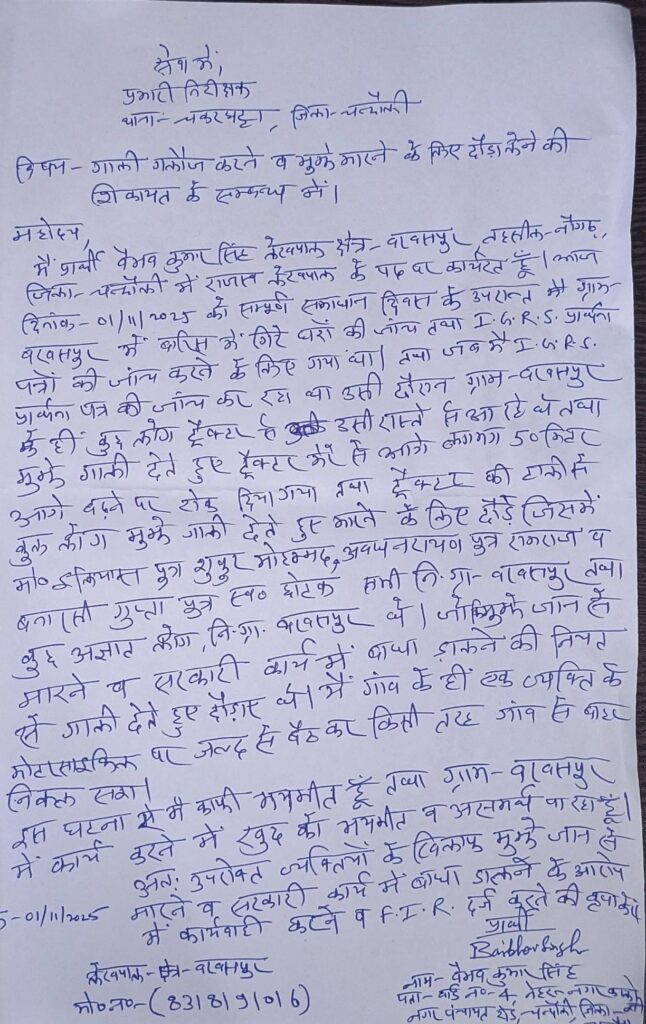 सेवा में,
प्रभारी निरीक्षक
थाना- चकरघट्टा, जिला- चन्दौली
विषय- गाली गलौज करते व मुझे मारने के लिए दौड़ा लेने की
शिकायत के सम्बन्ध में।
महोदय,
मैं प्रार्थी वैभव कुमार सिंह लेखपाल क्षेत्र- बरवसपुर, तहसील- नौगढ़,
जिला- चन्दौली में राजस्व लेखपाल के पद पर कार्यरत हूँ। आज
दिनांक- 01/11/2025 को सम्पूर्ण समाधान दिवस के उपरान्त मैं ग्राम-
बरवसपुर में बारिस में गिरे घरों की जाँच तथा I.G.R.S. प्रार्थना
पत्रों की जांच करने के लिए गया था। तथा जब मै I.G.R.S.
प्रार्थना पत्र की जांच कर रहा था उसी दौरान ग्राम- बरवसपुर
के हीं कुछ लोग ट्रैक्टर से उसी रास्ते से आ रहे थे तथा
मुझे गाली देते हुए ट्रैक्टर मेरे से आगे लगभग 50 मिटर
आगे बढ़ने पर रोक दिया गया तथा ट्रैक्टर की ट्राली से
कुछ लोग मुझे गाली देते हुए मारने के लिए दौड़े जिसमें
मो० इलियास पुत्र मोहम्मद, अवधनरायण पुत्र रामराज व
बनारसी गुप्ता पुत्र स्व० छोटक सभी नि.ग्रा- बरवसपुर तथा
कुछ अज्ञात लोग, नि.ग्रा. बरवसपुर थे। जो मुझे जान से
मारने व सरकारी कार्य में बाधा डालने की नियत
से गाली देते हुए दौड़ाए थे। मैं गांव के हीं एक व्यक्ति के
मोटरसाइकिल पर जल्द से बैठकर किसी तरह गांव से बाहर
निकल सका।
इस घटना से मै काफी भयभीत हूँ तथा ग्राम- बरवसपुर
में कार्य करने में खुद को भयभीत व असमर्थ पा रहा हूँ।
अतः उपरोक्त व्यक्तियों के खिलाफ मुझे जान से
मारने व सरकारी कार्य में बाधा डालने के आरोप
में कार्यवाही करने व F.I.R. दर्ज करने की कृपा करें।
01/11/2025
प्रार्थी
Baibhav Singh
लेखपाल- क्षेत्र- बरवसपुर
नाम- वैभव कुमार सिंह
मो०न०- (831891016)
पता- वार्ड न०- 4, नेहरू नगर
नगर पंचायत चन्दौली, जिला-